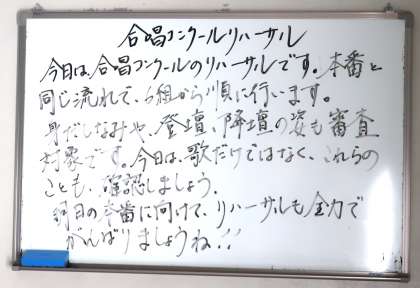 合唱コンクールリハーサル
今日は、合唱コンクールのリハーサルです。本番と
同じ流れで、6組から順に行います。
身だしなみや、登壇、降壇の姿も審査
対象です。今日は、歌だけではなく、これらの
ことも、確認しましょう。
明日の本番に向けて、リハーサルも全力で
がんばりましょうね!!